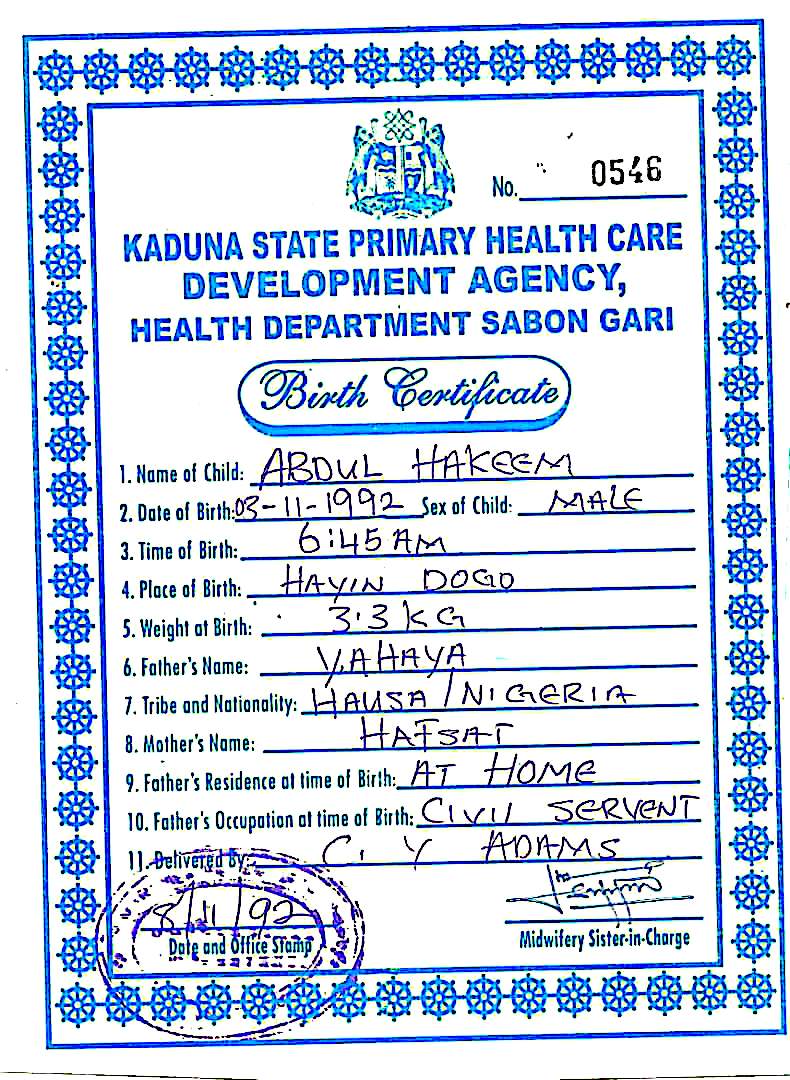 No. 0546
KADUNA STATE PRIMARY HEALTH CARE
DEVELOPMENT AGENCY,
HEALTH DEPARTMENT SABON GARI
Birth Certificate
1. Name of Child: ABDUL HAKEEM
2. Date of Birth: 03-11-1992 Sex of Child: MALE
3. Time of Birth: 6:45 AM
4. Place of Birth: HAYIN DOGO
5. Weight at Birth: 3.3 KG
6. Father's Name: YAHAYA
7. Tribe and Nationality: HAUSA/NIGERIA
8. Mother's Name: HAFSAT
9. Father's Residence at time of Birth: AT HOME
10. Father's Occupation at time of Birth: CIVIL SERVENT
11. Delivered By: C. Y ADAMS
8/11/92
Date and Office Stamp
Midwifery Sister-in-Charge